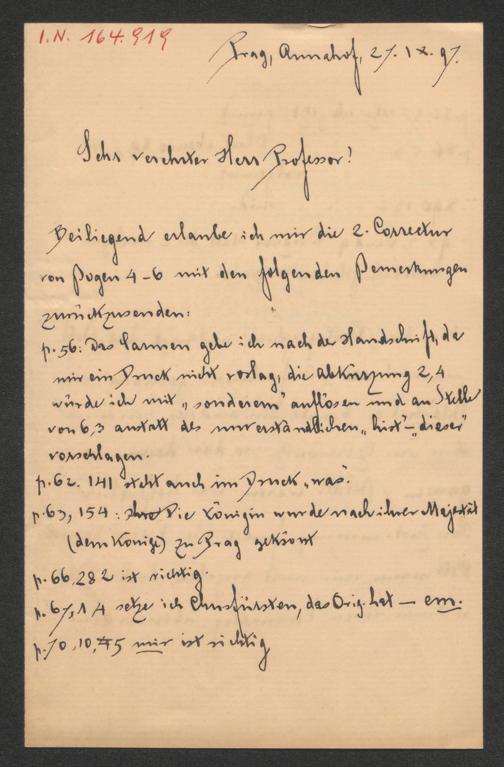 I.N. 164.919
Prag, Annahof, 27. IX. 97.
Sehr verehrter Herr Professor!
Beiliegend erlaube ich mir die 2. Correctur
von Bogen 4-6 mit den folgenden Bemerkungen
zurückzusenden:
p. 56: Das Carmen gebe ich nach der Handschrift, da
mir ein Druck nicht vorlag, die Abkürzung 2,4
würde ich mit „sonderem" auflösen und an Stelle
von 6,3 anstatt des unverständlichen „hist" – „dieser"
vorschlagen.
p. 62. 141 steht auch im Druck „was".
p. 63, 154: Die Königin wurde nach ihrer Majestät
(dem Könige) zu Prag gekrönt
p. 66, 282 ist richtig.
p. 67, 14 setze ich Churfürsten, das Orig. hat – em.
p. 70, 10, 45 mir ist richtig